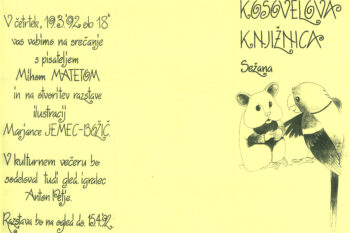 V četrtek, 19.3.'92 ob 18ʰ
vas vabimo na srečanje
s pisateljem
Mihom MATETOM
in na otvoritev razstave
ilustracij
Marjance JEMEC-BOŽIČ.
V kulturnem večeru bo
sodeloval tudi gled. igralec
Anton Petje.
Razstava bo na ogled do 15.4.'92
KOSOVELOVA
KNJIŽNICA
Sežana